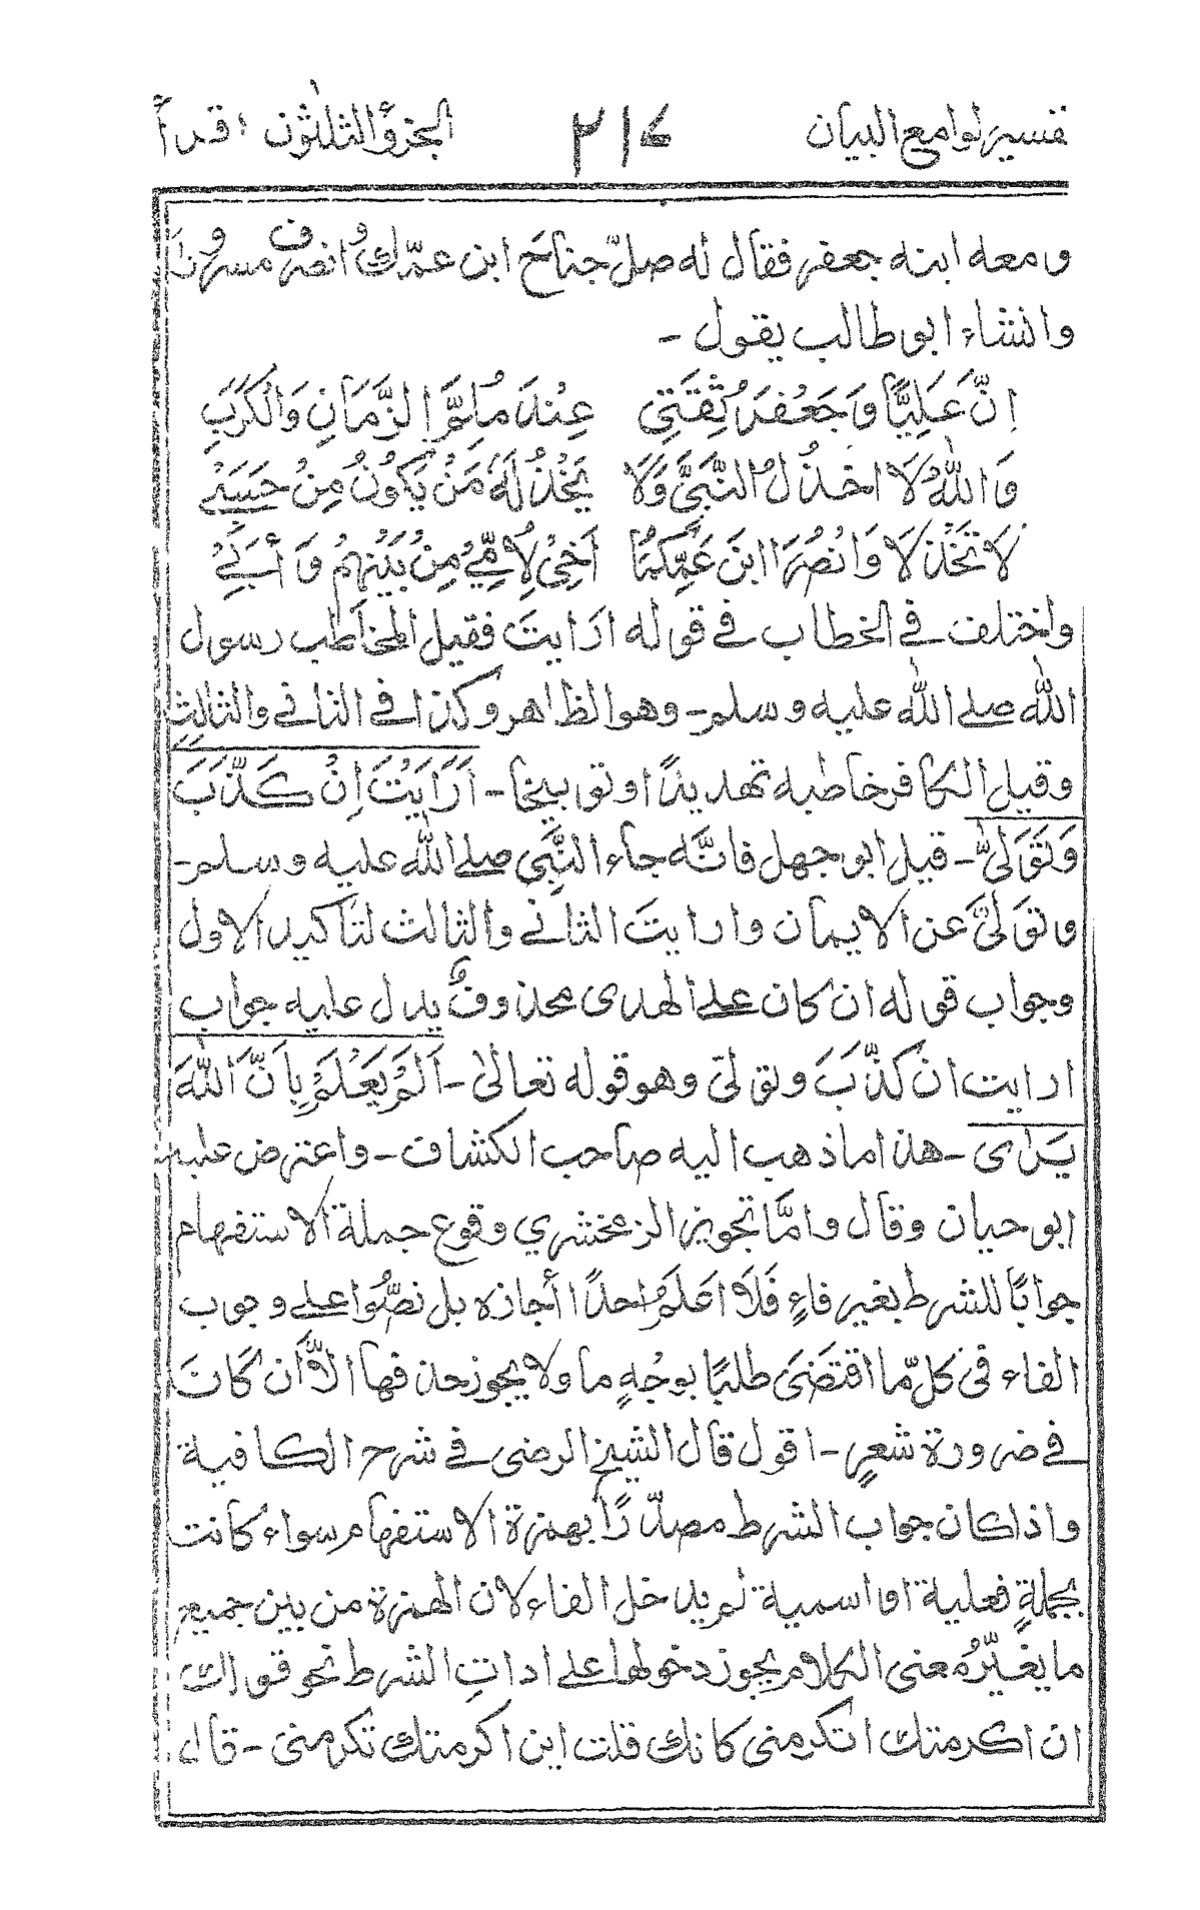 تفسير لوامع البيان ٢١٤ الجزؤ الثلثون ؛ قد أ
ومعه ابنه جعفر فقال له صلّ جناحَ ابن عمّك وانصرف مسرورًا
وانشاء ابو طالب يقول -
اِنَّ عَلِيًّا وَجَعْفَرَ ثِقَتِي عِنْدَ مُلِمِّ الزَّمَانِ وَالْكُرَبِ
وَاللّٰهُ لَا اخْذُلُ النَّبِيَّ وَلَا يَخْذُلُهٗ مَنْ يَكُوْنُ مِنْ حَسَبِيْ
لَا تَخْذُلَا وَانْصُرَا ابنَ عَمِّكُمَا اَخِيْ لِأُمِّيْ مِنْ بَيْنِهِمْ وَ أَبِيْ
واختلف في الخطاب في قوله ارايتَ فقيل المخاطب رسول
اللّٰه صلے اللّٰه عليه وسلم - وهو الظاهر وكذا في الثاني والثالثِ
وقيل الكافر خاطبه تهديدًا او توبيخا - اَرَاَيْتَ اِنْ كَذَّبَ
وَتَوَلّٰى - قيل ابو جهل فانَّه جاء النَّبِي صلے اللّٰه عليه وسلم -
وتولّٰى عن الايمان وارايتَ الثاني والثالث لتاكيد الاول
وجواب قوله ان كان علے الهدى محذوفٌ يدل عليه جواب
ارايت ان كذّبَ وتولّى وهو قوله تعالىٰ - اَلَمْ يَعْلَمْ بِاَنَّ اللّٰهَ
يَرٰى - هذا ما ذهب اليه صاحب الكشاف - واعترض عليه
ابو حيان وقال وامَّا تجويز الزمخشري وقوع جملة الاستفهام
جوابًا للشرط بغير فاءٍ فَلَا اَعْلَمُ احدًا أجازه بل نصُّوا علے وجوب
الفاء في كلّ ما اقتضَى طلبًا بوجْهٍ ما ولا يجوز حذفها الَّا ان كَانَ
في ضرورة شعرٍ - اقول قال الشيخ الرضى في شرح الكافية
واذا كان جواب الشرط مصدّرًا بهمزة الاستفهام سواء كانت
بجملةٍ فعلية او اسمية لم يدخل الفاء لان الهمزة من بين جميع
ما يغيّرُ معنى الكلام يجوز دخولها علے اداتِ الشرط نحو قولك
ان اكرمتك اتكرمنى كانك قلت ائن اكرمتك تكرمنى - قال